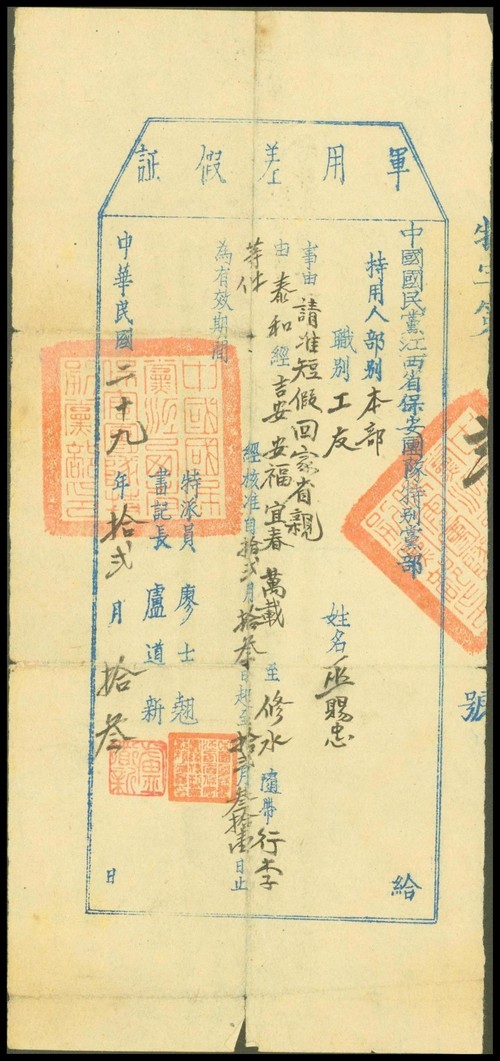 號
軍用差假証
中國國民黨江西省保安團隊特別黨部 給
持用人部別 本部
職別 工友 姓名 巫賜忠
事由 請准短假回家省親
由 泰和 經 吉安 安福 宜春 萬載 至 修水 隨帶 行李
等件 經核准自拾弍月拾叁日起至拾弍月叁拾壹日止
為有效期間
特派員 廖士翹
書記長 盧道新
中華民國二十九年拾弍月拾叁日